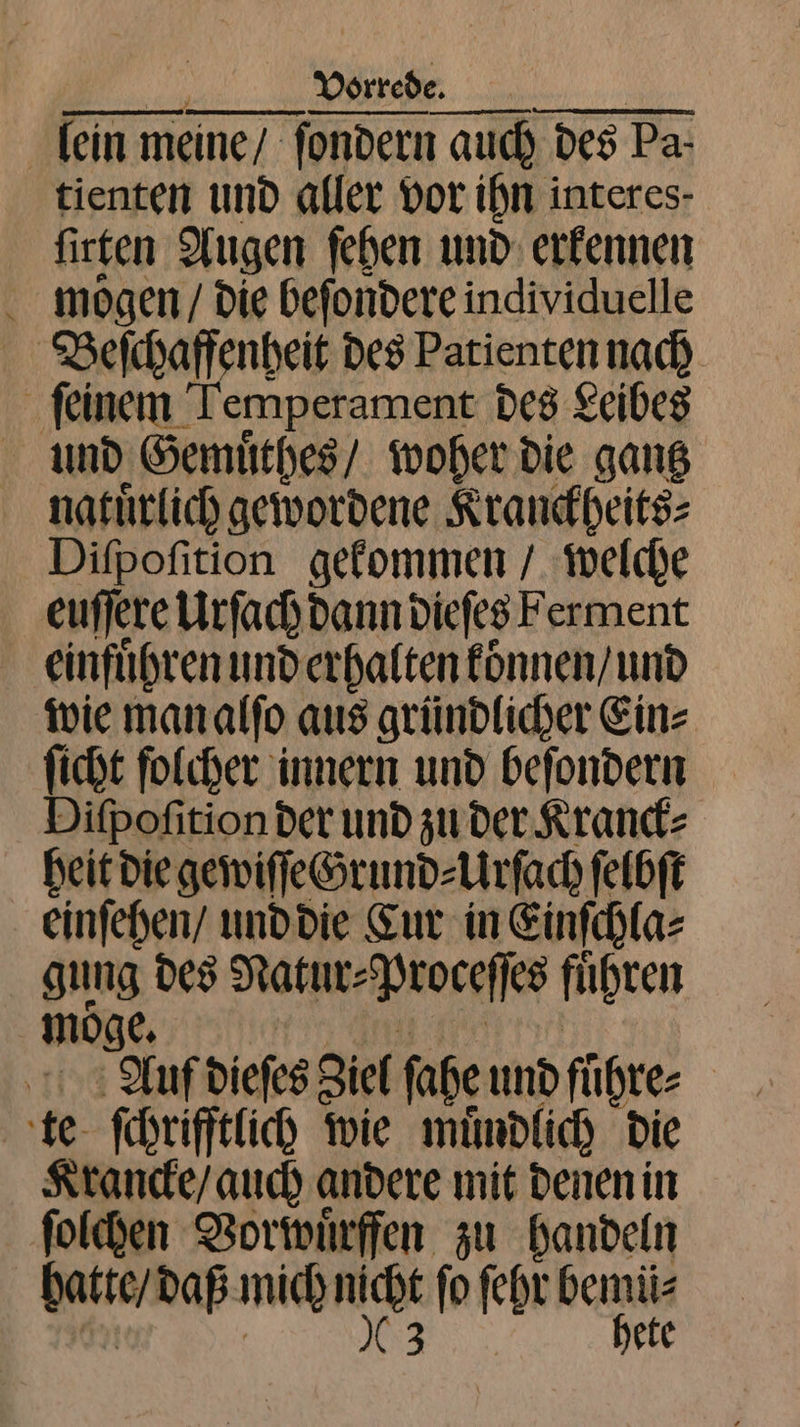 Vorrede.
lein meine/ ſondern auch des Pa-
tienten und aller vor ihn interes-
ſirten Augen ſehen und erkennen
moͤgen/ die beſondere individuelle
Beſchaffenheit des Patienten nach
ſeinem Temperament des Leibes
und Gemuͤthes/ woher die gantz
natuͤrlich gewordene Kranckheits-
Diſpoſition gekommen / welche
euſſere Urſach dann dieſes Ferment
einfuͤhren und erhalten koͤnnen/und
wie man alſo aus gruͤndlicher Ein-
ſicht ſolcher innern und beſondern
Diſpoſition der und zu der Kranck-
heit die gewiſſe Grund-Urſach ſelbſt
einſehen/ und die Cur in Einſchla-
gung des Natur-Proceſſes fuͤhren
moͤge.
Auf dieſes Ziel ſahe und fuͤhre-
te ſchrifftlich wie muͤndlich die
Krancke/auch andere mit denen in
ſolchen Vorwuͤrffen zu handeln
hatte/ daß mich nicht ſo ſehr bemuͤ-
)( 3 hete